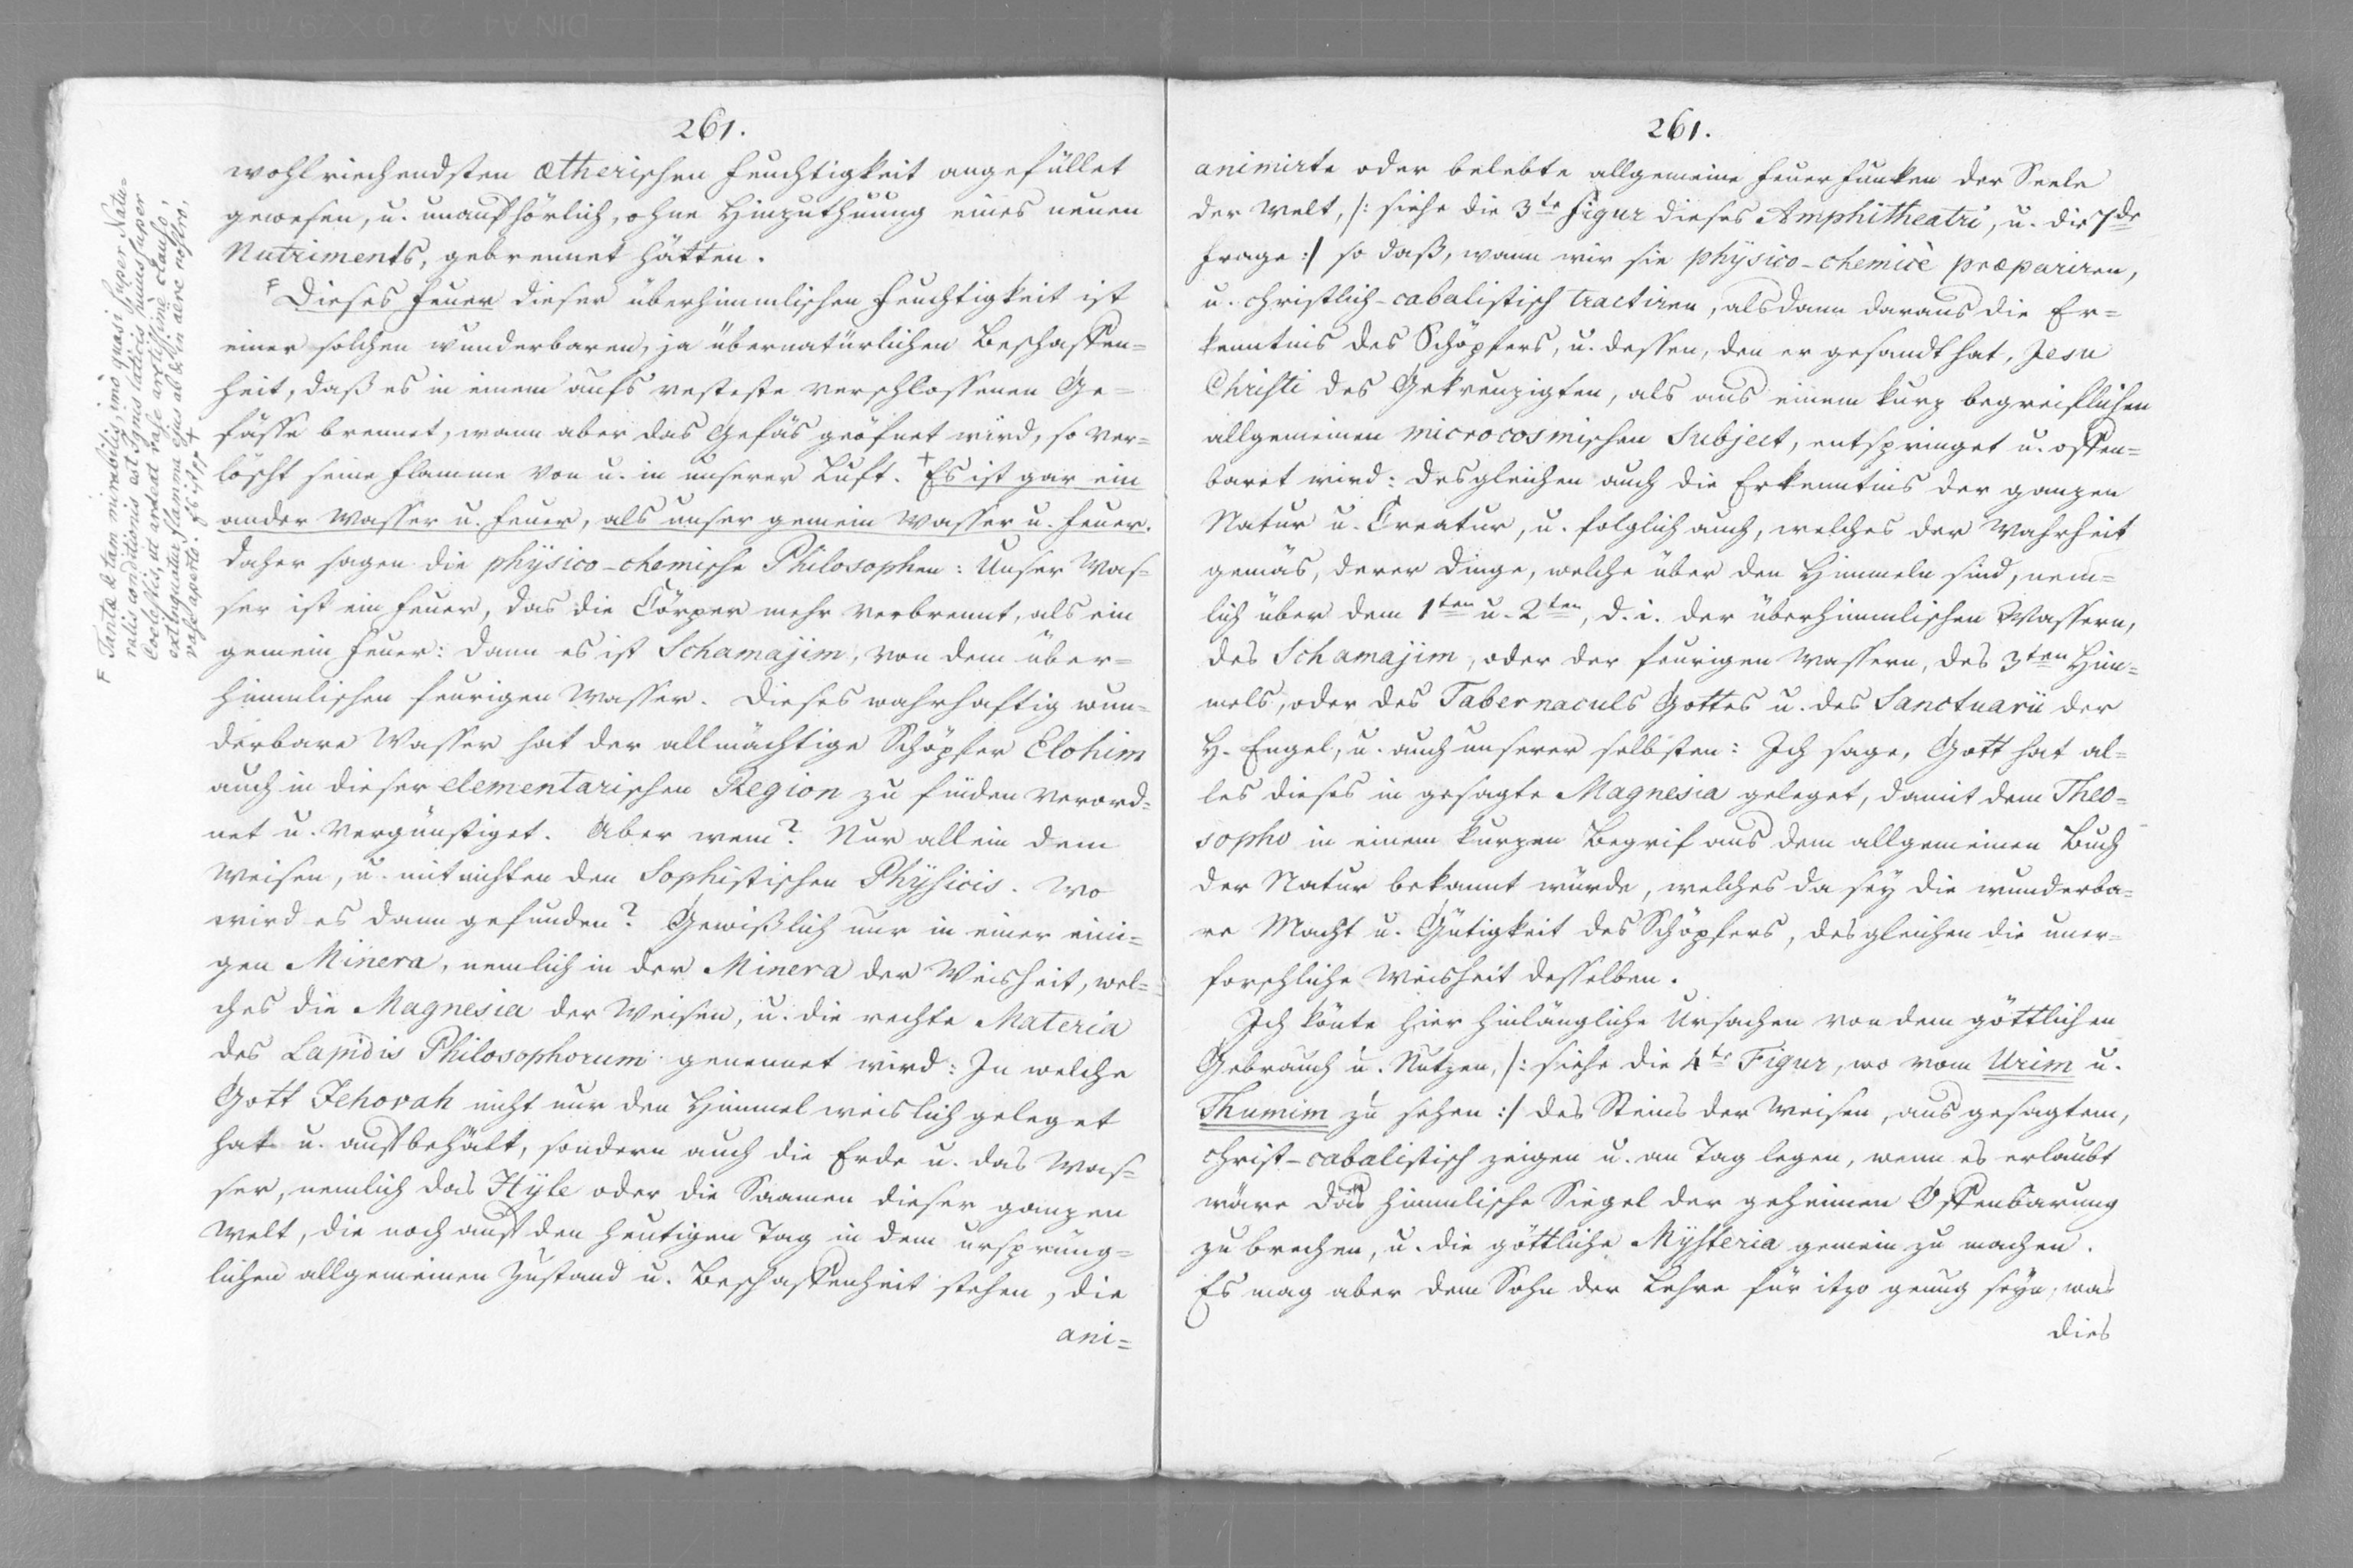 261.
wohlriechendsten ætherischen Feuchtigkeit angefüllet
gewesen, u. unaufhörlich, ohne Hinzuthuung eines neuen
Nutriments, gebrennet hätten.
F Dieses Feuer dieser überhimmlischen Feuchtigkeit ist
einer solchen wunderbaren, ja übernatürlichen Beschaffen=
heit, daß es in einem aufs vesteste verschlossenen Ge=
fässe brennet, wann aber das Gefäs geöfnet wird, so ver=
löscht seine Flamme von u. in unserer Luft. + Es ist gar ein
ander Wasser u. Feuer, als unser gemein Wasser u. Feuer.
Daher sagen die physico-chemische Philosophen: Unser Was=
ser ist ein Feuer, das die Cörper mehr verbrennt, als ein
gemein Feuer: Dann es ist Schamajim, von dem über=
himmlischen feurigen Wasser. Dieses wahrhaftig wun=
derbare Wasser hat der allmächtige Schöpfer Elohim
auch in dieser elementarischen Region zu finden verord=
net u. vergünstiget. Aber wem? Nur allein dem
Weisen, u. mit nichten den Sophistischen Physicis. Wo
wird es dann gefunden? Gewißlich nur in einer eini=
gen Minera, nemlich in der Minera der Weisheit, wel=
ches die Magnesia der Weisen, u. die rechte Materia
des Lapidis Philosophorum genennet wird: In welche
Gott Jehovah nicht nur den Himmel weislich geleget
hat u. aufbehält, sondern auch die Erde u. das Was=
ser, nemlich das Hyle oder die Saamen dieser ganzen
Welt, die noch auf den heutigen Tag in dem ursprüng=
lichen allgemeinen Zustand u. Beschaffenheit stehen, die
ani=
F Tantæ & tam mirabilis, imò quasi super Natu=
ralis conditionis est Ignis laticis hujus super
Coelestis, ut ardeat vase arctissimè clauso;
extinguatur flamma ejus ab & in aëre nostro,
vase aperto. Es ist pp +
261.
animirte oder belebte allgemeine Feuer Funken der Seele
der Welt, /: siehe die 3te Figur dieses Amphitheatri, u. die 7de
Frage :/ so daß, wann wir sie physico-chemicè præpariren,
u. christlich-cabalistisch tractiren, alsdann daraus die Er=
kenntnis des Schöpfers, u. dessen, den er gesandt hat, Jesu
Christi des Gekreuzigten, als aus einem kurz begreiflichen
allgemeinen microcosmischen Subject, entspringet u. offen=
baret wird: desgleichen auch die Erkenntnis der ganzen
Natur u. Creatur, u. folglich auch, welches der Wahrheit
gemäs, derer Dinge, welche über den Himmeln sind, nem=
lich über dem 1ten u. 2ten, d. i. der überhimmlischen Wassern,
des Schamajim, oder der feurigen Wassern, des 3ten Him=
mels, oder des Tabernaculs Gottes u. des Sanctuarii der
H. Engel, u. auch unserer selbsten: Ich sage, Gott hat al=
les dieses in gesagte Magnesia geleget, damit dem Theo=
sopho in einem kurzen Begrif aus dem allgemeinen Buch
der Natur bekannt würde, welches da sey die wunderba=
re Macht u. Gütigkeit des Schöpfers, desgleichen die uner=
forschliche Weisheit desselben.
Ich könte hier hinlängliche Ursachen von dem göttlichen
Gebrauch u. Nutzen, /: siehe die 4te Figur, wo vom Urim u.
Thumim zu sehen :/ des Steins der Weisen, aus gesagtem,
christ-cabalistisch zeigen u. an Tag legen, wenn es erlaubt
wäre das himmlische Siegel der geheimen Offenbarung
zu brechen, u. die göttliche Mysteria gemein zu machen.
Es mag aber dem Sohn der Lehre für itzo genug seyn, was
dies